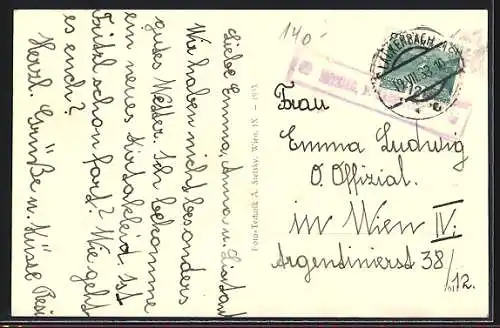 140.-
Liebe Emma, Anna u.
Wir haben nicht besonders
gutes Wetter. Ich bekomme
ein neues Kirtakleid. Ist
Fritzl schon fort? Wie geht
es euch?
Herzl. Grüße u. Küsse Resi
Foto-Technik A. Stefsky, Wien, IX – 1932
19.VII.33
Frau
Emma Ludwig
O. Offizial.
im Wien IV.
Argentinierst 38/12.